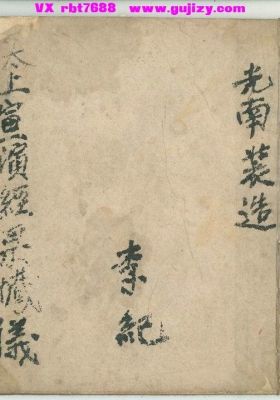 VX rbt7688 www.gujizy.com
光南裝造
李紀
太上寅演經果懺儀